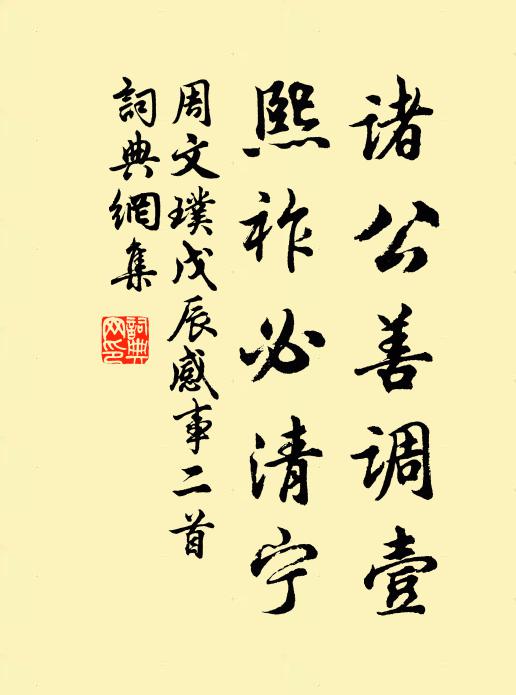 诸公善调壹
熙祚必清宁
周文璞戊辰感事二首
詞典網集
詞典
网印